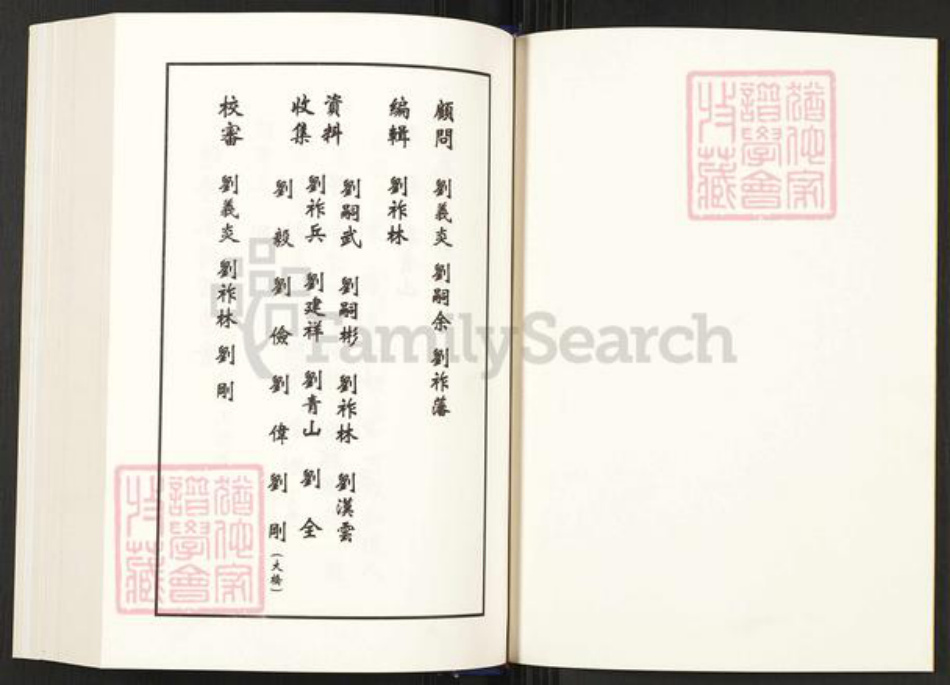 顧問 劉義炎 劉嗣余 劉祚藩
編輯 劉祚林
資料收集
劉嗣武 劉嗣彬 劉祚林 劉漢雲
劉祚兵 劉建祥 劉青山 劉全
劉毅 劉儉 劉偉 劉剛(大橋)
校審 劉義炎 劉祚林 劉剛
猶他家譜學會收藏
猶他家譜學會收藏
FamilySearch